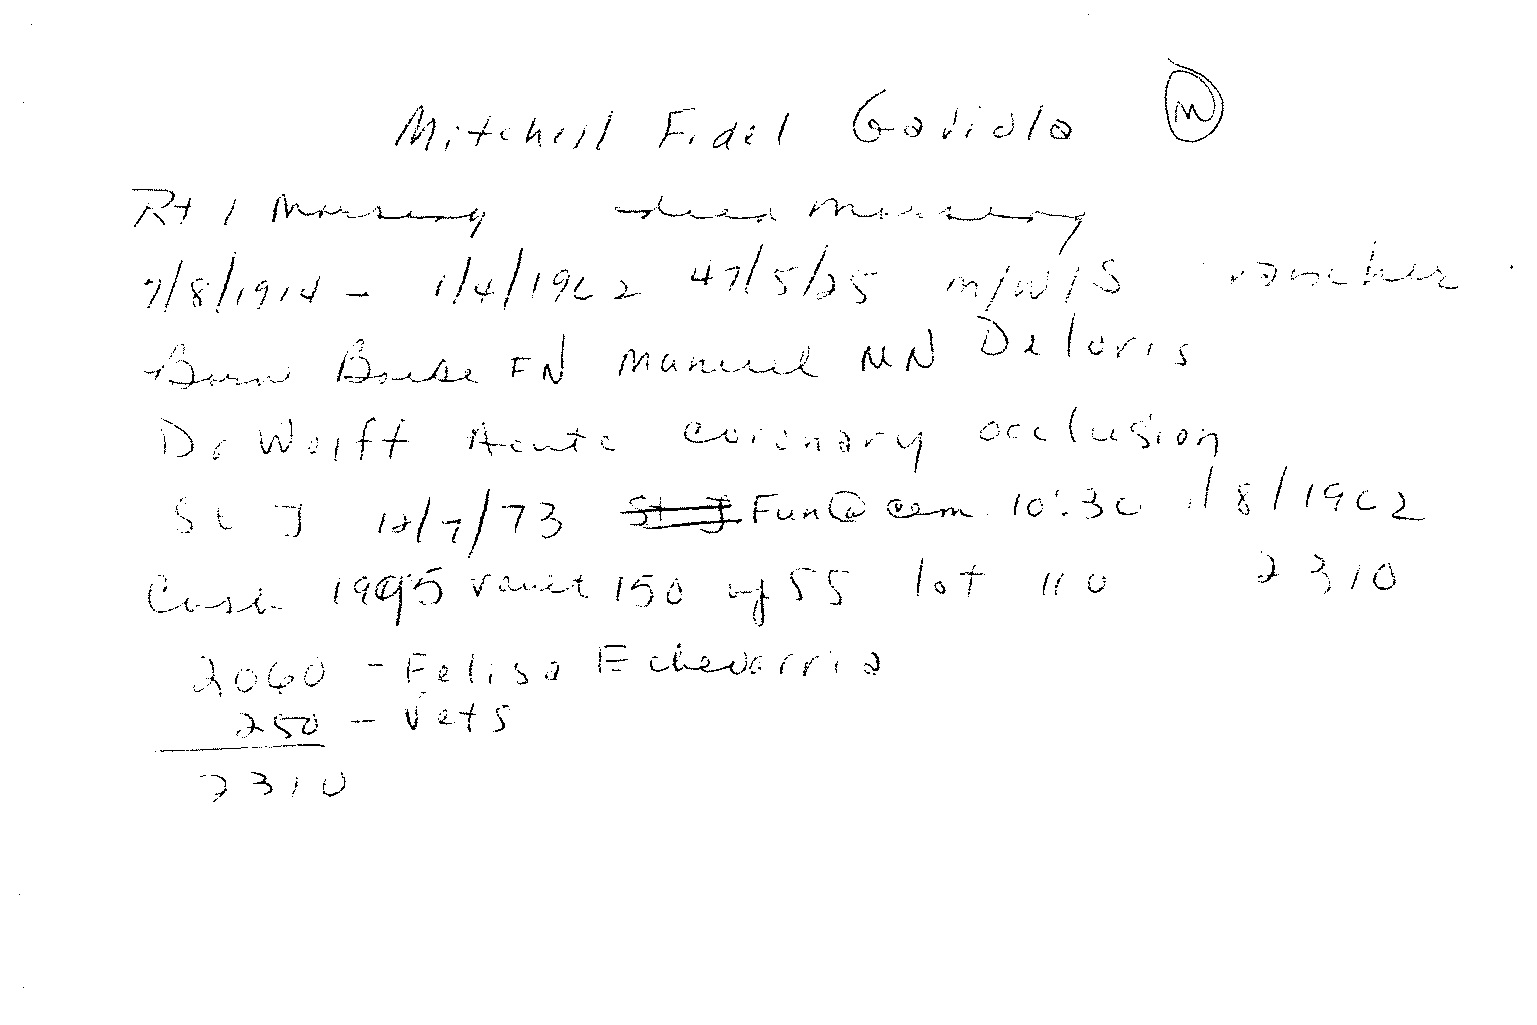 Mitchell Fidel Gaviola M
Rt 1 Marsing died Marsing
7/8/1914 - 1/4/1962 47/5/25 m/W/S rancher
Born Boise FN Manuel MN Deloris
Dr Wolff Acute coronary occlusion
St J 12/7/73 St J Fun @ cem 10:30 1/8/1962
Cash 1995 vault 150 of 55 lot 110 2310
2060 - Felisa Echevarria
250 - Vets
2310